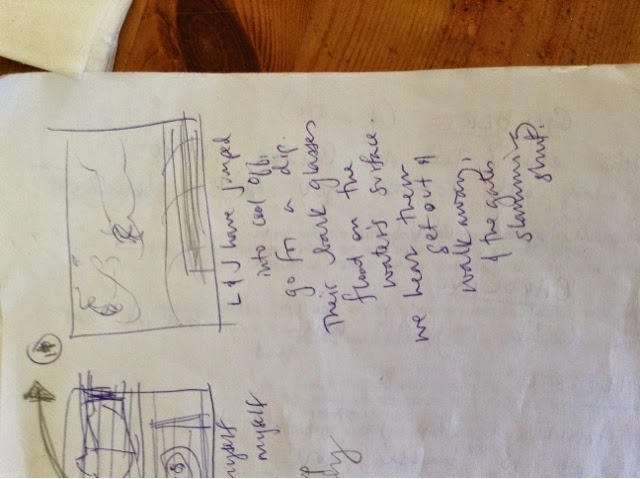 L & J have jumped
into cool off,
go for a dip.
Their dark glasses
float on the
water's surface.
we hear them
get out &
walk away,
& the gate
slamming
shut.
myself
myself